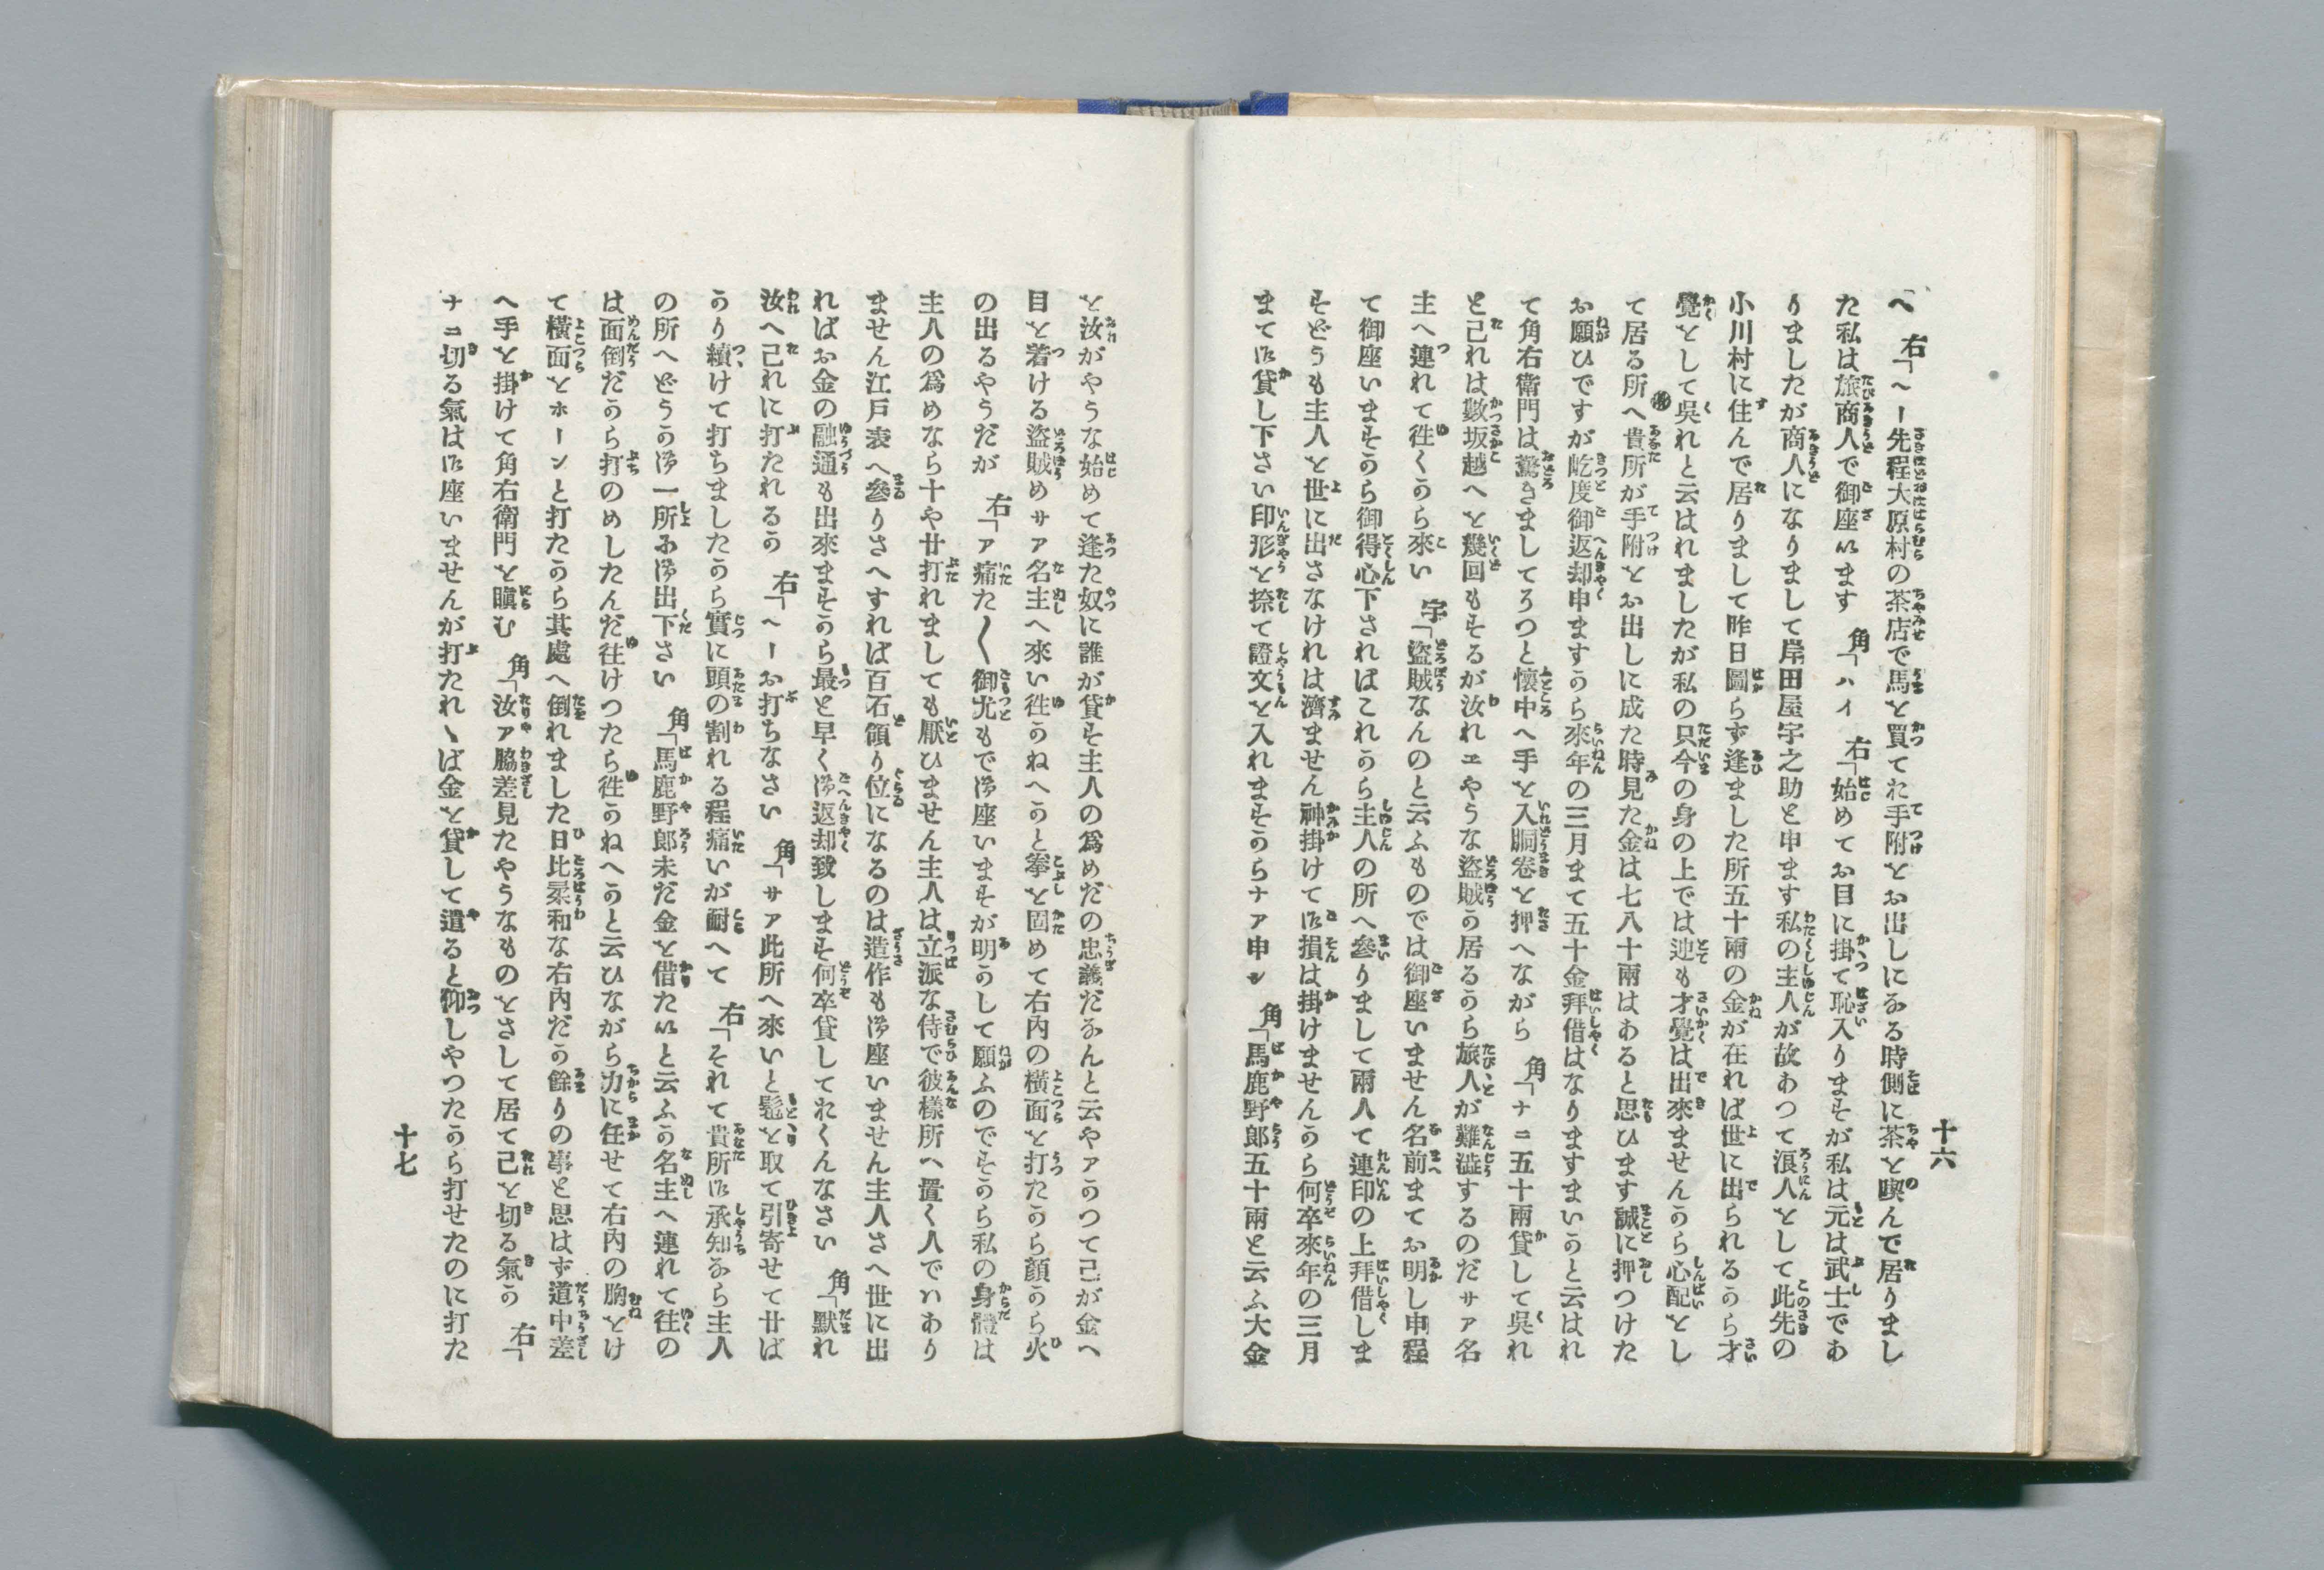 十六
へ 右「ヘー先程大原村の茶店で馬を買てれ手附をお出しになる時側に茶を喫んで居りまし
た私は旅商人で御座います 角「ハイ 右「始めてお目に掛て恥入りますが私は元は武士であ
りましたが商人になりまして岸田屋宇之助と申ます私の主人が故あつて浪人をして此先の
小川村に住んで居りまして昨日圖らず逢ました所五十兩の金が在れば世に出られるから才
覺をして呉れと云はれましたが私の只今の身の上では迚も才覺は出來ませんから心配をし
て居る所へ貴所が手附をお出しに成た時見た金は七八十兩はあると思ひます誠に押つけた
お願ひですが屹度御返却申ますから來年の三月まて五十金拜借はなりますまいかと云はれ
て角右衛門は驚きましてろつと懷中へ手を入胴卷を押へながら 角「ナニ五十兩貸して呉れ
と己れは數坂越へを幾回もするが汝れエやうな盜賊が居るから旅人が難澁するのだサア名
主へ連れて徃くから來い 宇「盜賊なんのと云ふものでは御座いません名前まてお明し申程
て御座いますから御得心下さればこれから主人の所へ參りまして兩人て連印の上拜借しま
すどうも主人を世に出さなけれは濟ません神掛けて御損は掛けませんから何卒來年の三月
まて御貸し下さい印形を捺て證文を入れますからナア申シ 角「馬鹿野郎五十兩と云ふ大金
を汝がやうな始めて逢た奴に誰が貸す主人の爲めだの忠義だなんと云やアがつて己が金へ
目を着ける盜賊めサア名主へ來い徃かねへかと拳を固めて右内の橫面を打たから顏から火
の出るやうだが 右「ア痛た〱御尤もで御座いますが明かして願ふのですから私の身體は
主人の爲めなら十や廿打れましても厭ひません主人は立派な侍で彼樣所へ置く人でいあり
ません江戸表へ參りさへすれば百石領り位になるのは造作も御座いません主人さへ世に出
ればお金の融通も出來ますから最と早く御返却致します何卒貸してれくんなさい 角「默れ
汝へ己れに打たれるか 右「ヘーお打ちなさい 角「サア此所へ來いと髱を取て引寄せて廿ば
かり續けて打ちましたから實に頭の割れる程痛いが耐へて 右「それて貴所御承知なら主人
の所へどうか御一所にお出下さい 角「馬鹿野郎未だ金を借たいと云ふか名主へ連れて徃の
は面倒だから打のめしたんだ徃けつたら徃かねへかと云ひながら力に任せて右内の胸をけ
て橫面をホーンと打たから其處へ倒れました日比柔和な右内だが餘りの事と思はず道中差
へ手を掛けて角右衛門を瞋む 角「汝ア脇差見たやうなものをさして居て己を切る氣か 右「
ナニ切る氣は御座いませんが打たれゝば金を貸して遣ると仰しやつたから打せたのに打た
十七